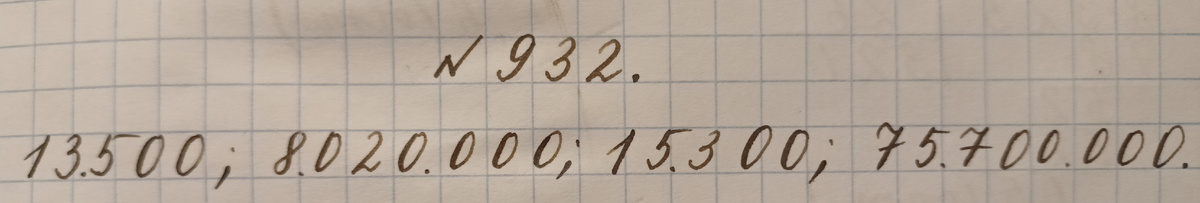 № 932.
13.500; 8.020.000; 15.300; 75.700.000.